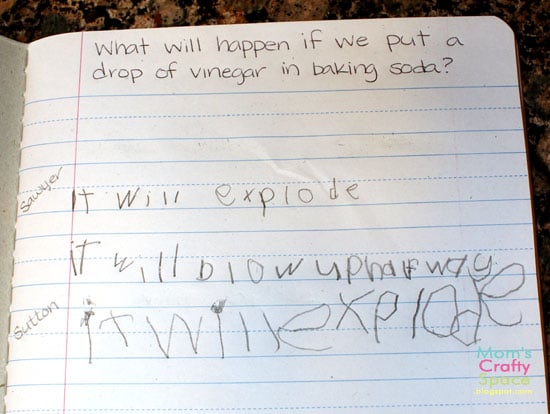 What will happen if we put a
drop of vinegar in baking soda?
Sawyer
It will explode
IT will blow up half way
Sutton
it will explode
Mom's
Crafty
Space
blogspot.com